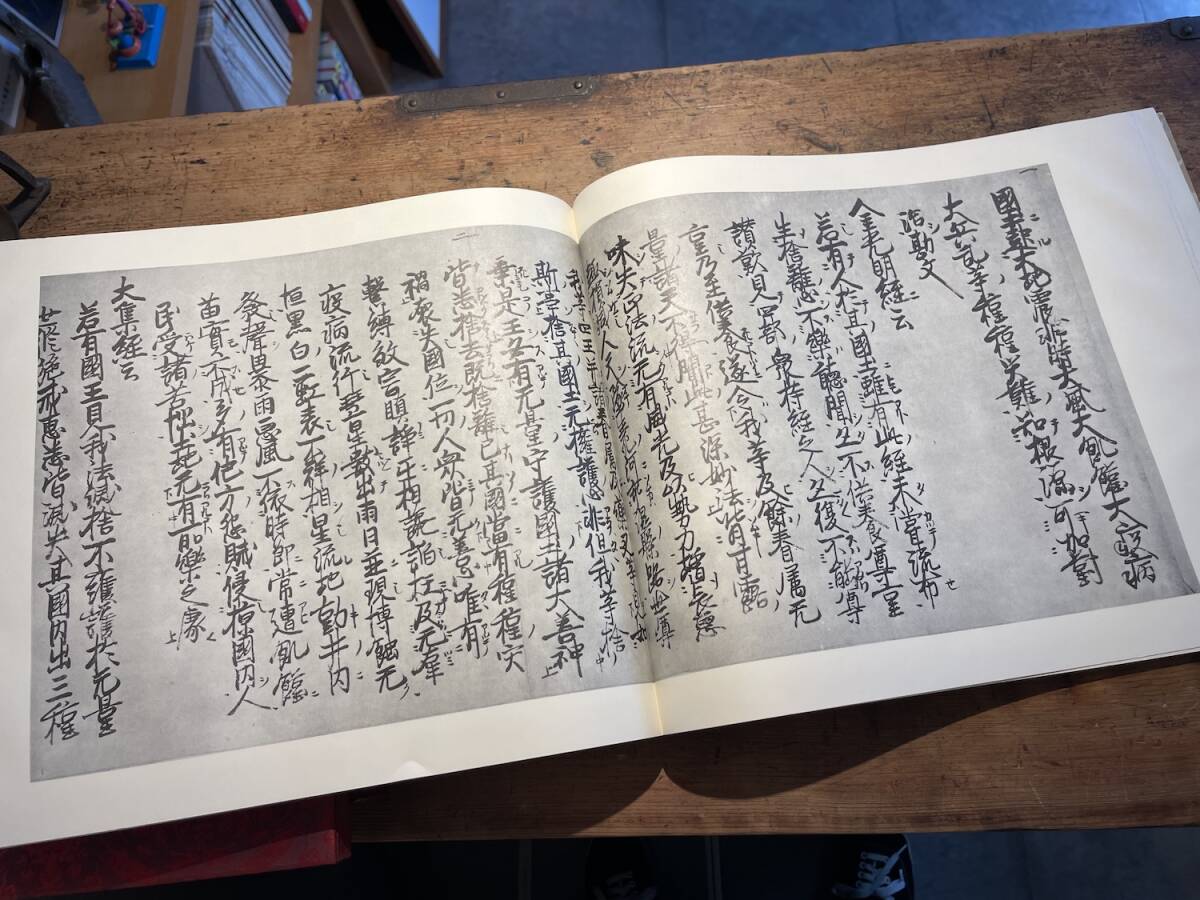 國土起大地震非時大風大飢饉大疫病
大兵乱等種種災難知根源可加對
治勘文
金光明経云
若有人於其國土雖有此経未甞流布
生捨離心不樂聽聞亦不供養尊重
讃歎見四部衆持経之人亦復不能尊
重乃至供養遂令我等及餘眷属无
量諸天不得聞此甚深妙法背甘露
味失正法流无有威光及以勢力増長悪
趣損減人天墜生死河乖涅槃路世尊
我等四王并諸眷属及薬叉等見如
斯事捨其國土无擁護心非但我等捨
棄是王亦有无量守護國土諸大善神
皆悉捨去既捨離已其國當有種種災
禍喪失國位一切人衆皆无善心唯有
繋縛敘害瞋諍互相讒諂枉及无辜
疫病流行彗星數出兩日並現博蝕无
恒黒白二虹表不祥相星流地動井内
發聲暴雨悪風不依時節常遭飢饉
苗實不成多有他方怨賊侵掠國内人
民受諸苦惱土地无有可樂之處
大集経云
若有國王見我法滅捨不擁護於无量
世修施戒恵悉皆滅失其國内出三種